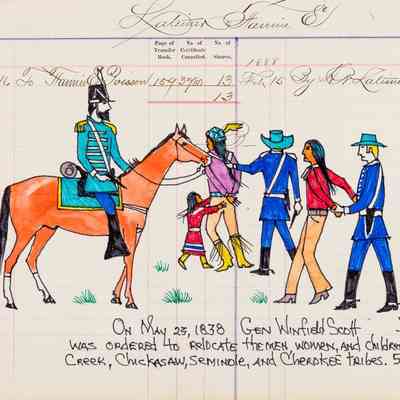 Latimer Fannie E
Page of Transfer Book. No of Certificate Cancelled. No of Shares.
1888
16 To Fannie E 154 13 Feb 15 By
13
On May 23, 1838 Gen Winfield Scott
was ordered to relocate the men, women, and children
Creek, Chickasaw, Seminole, and Cherokee tribes. 5